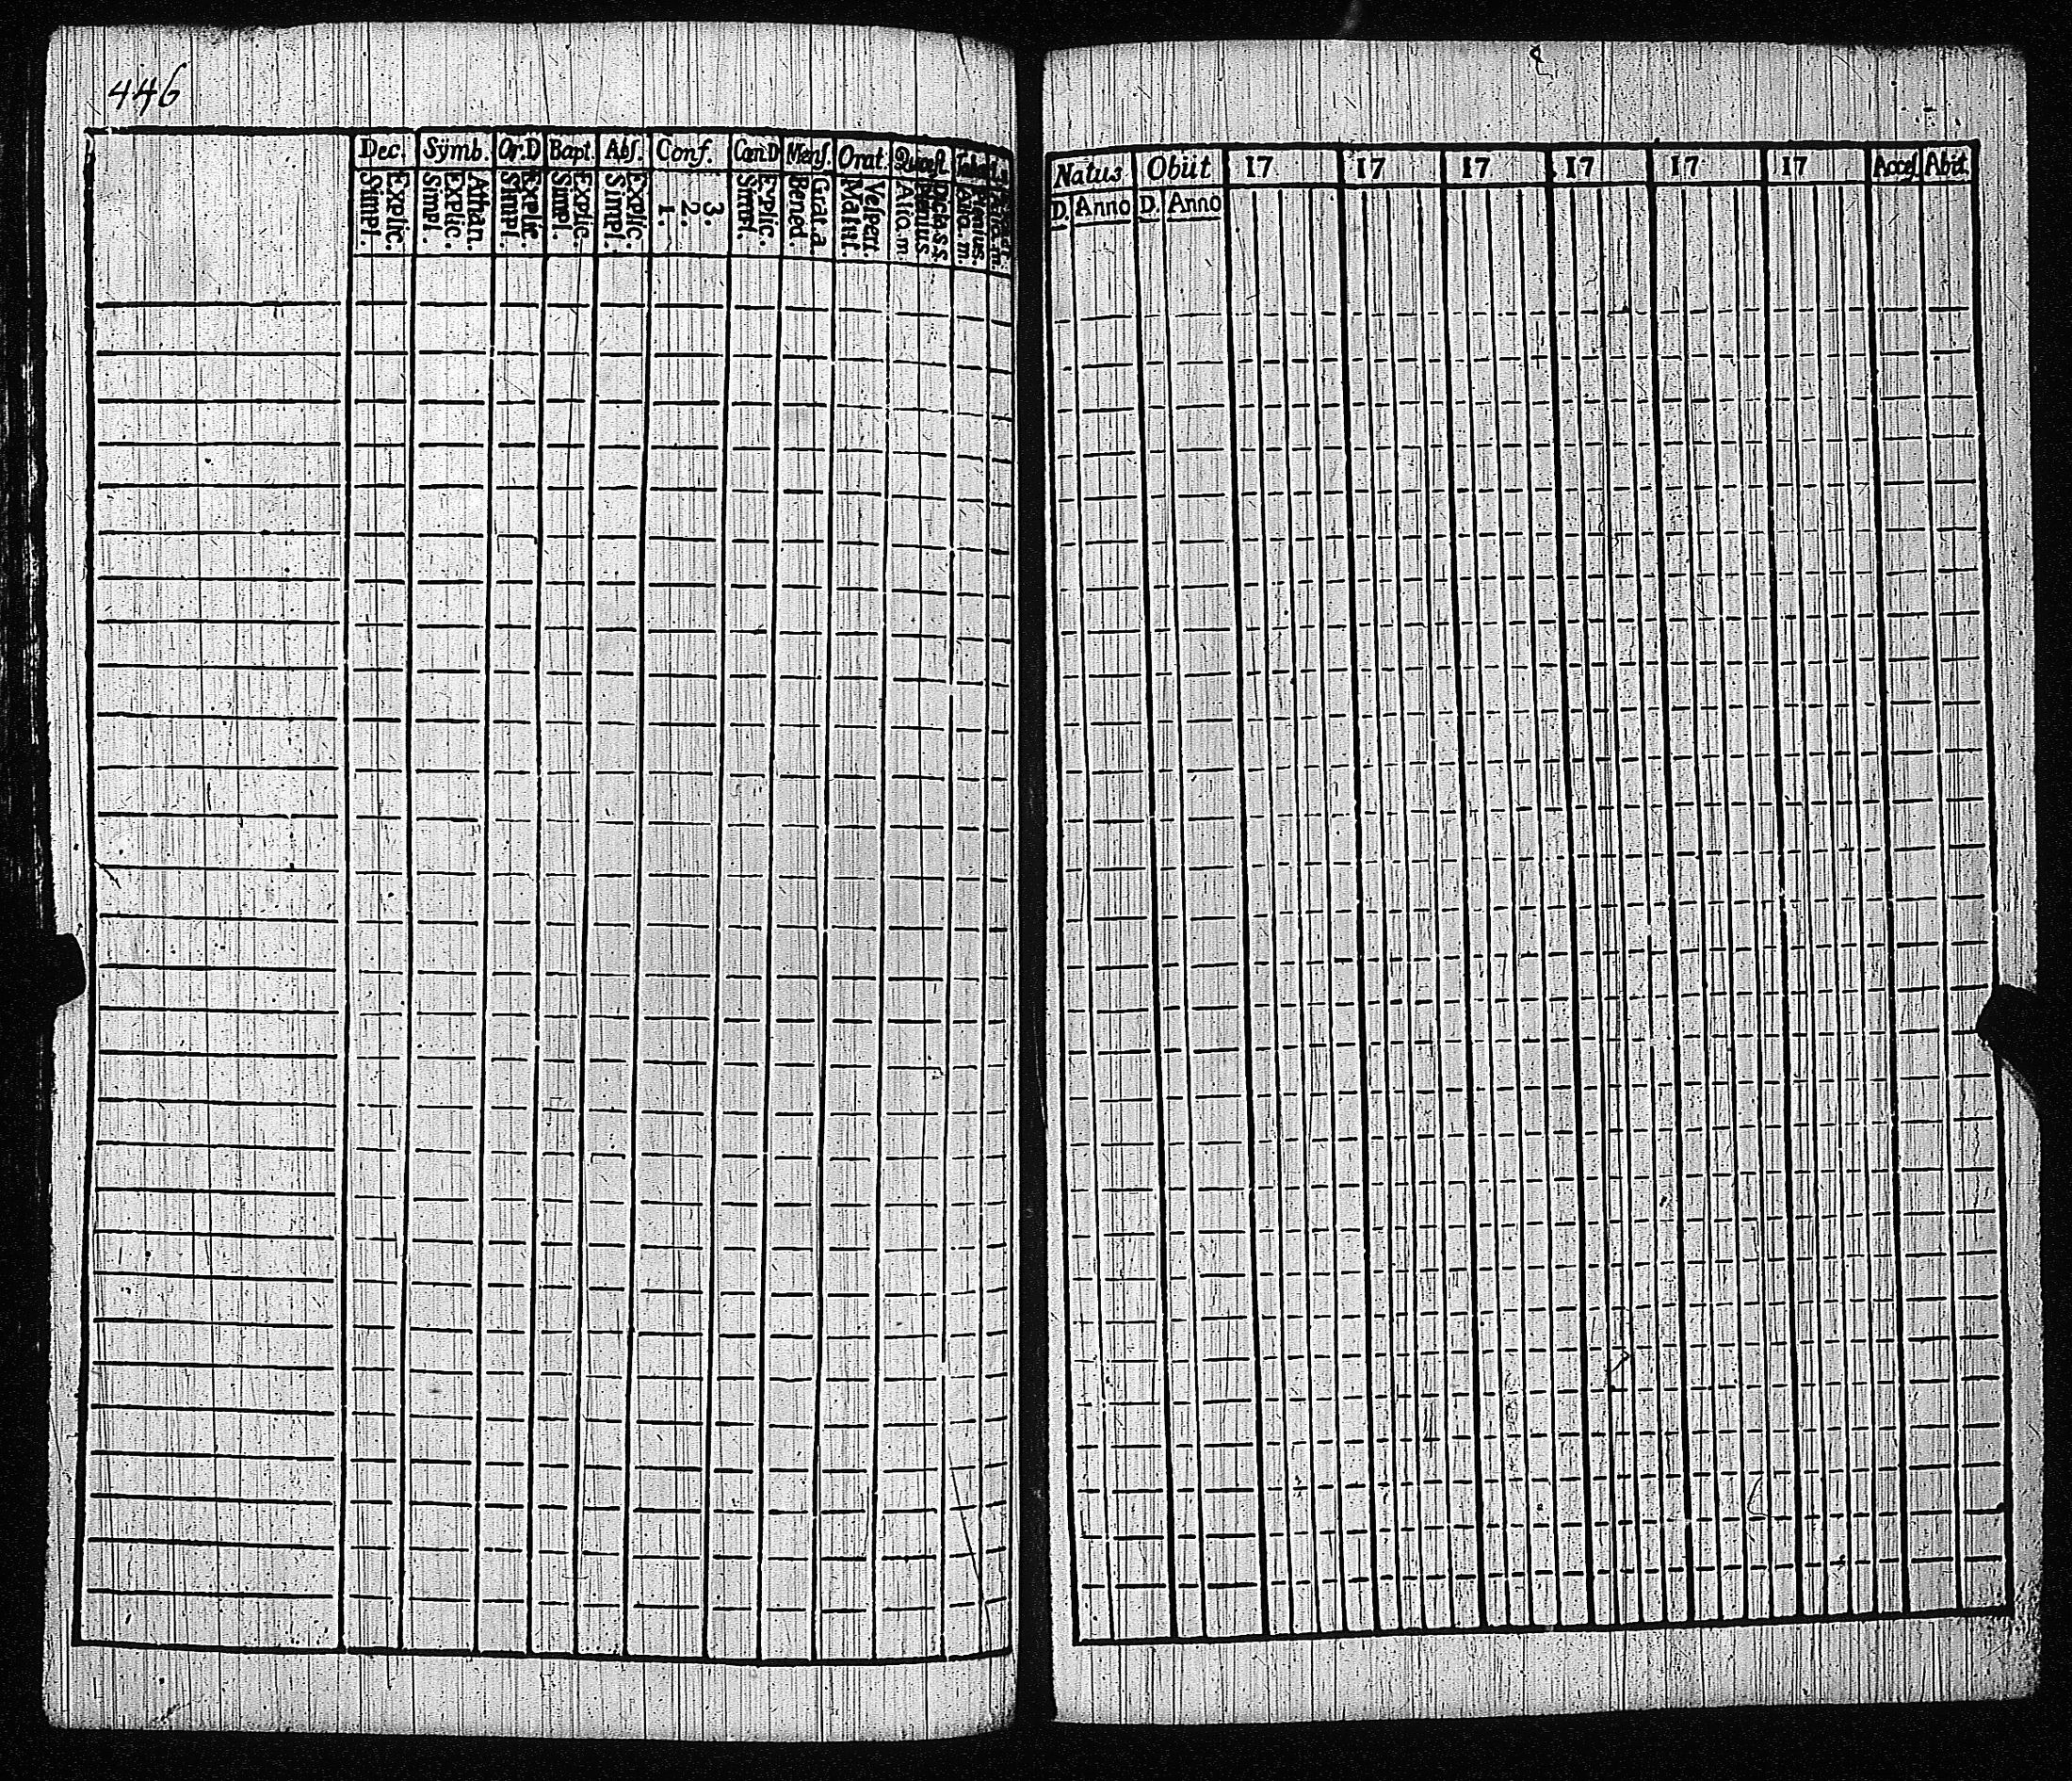 446
Dec. Sÿmb. Or.D Bapt. Abs. Conf. Cœn.D Mens. Orat. Quæst. Tabul.
Explic. Simpl. Athan. Explic. Simpl. Explic. Simpl. Explic. Simpl. Explic. Simpl. 3. 2. 1. Explic. Simpl. Grat.a Bened. Vespert. Matut. Dicta.s.s. Plenius. Aliq.m Plenius. Aliq.m
Natus Obiit 17 17 17 17 17 17 Acces. Abit.
D. Anno D. Anno